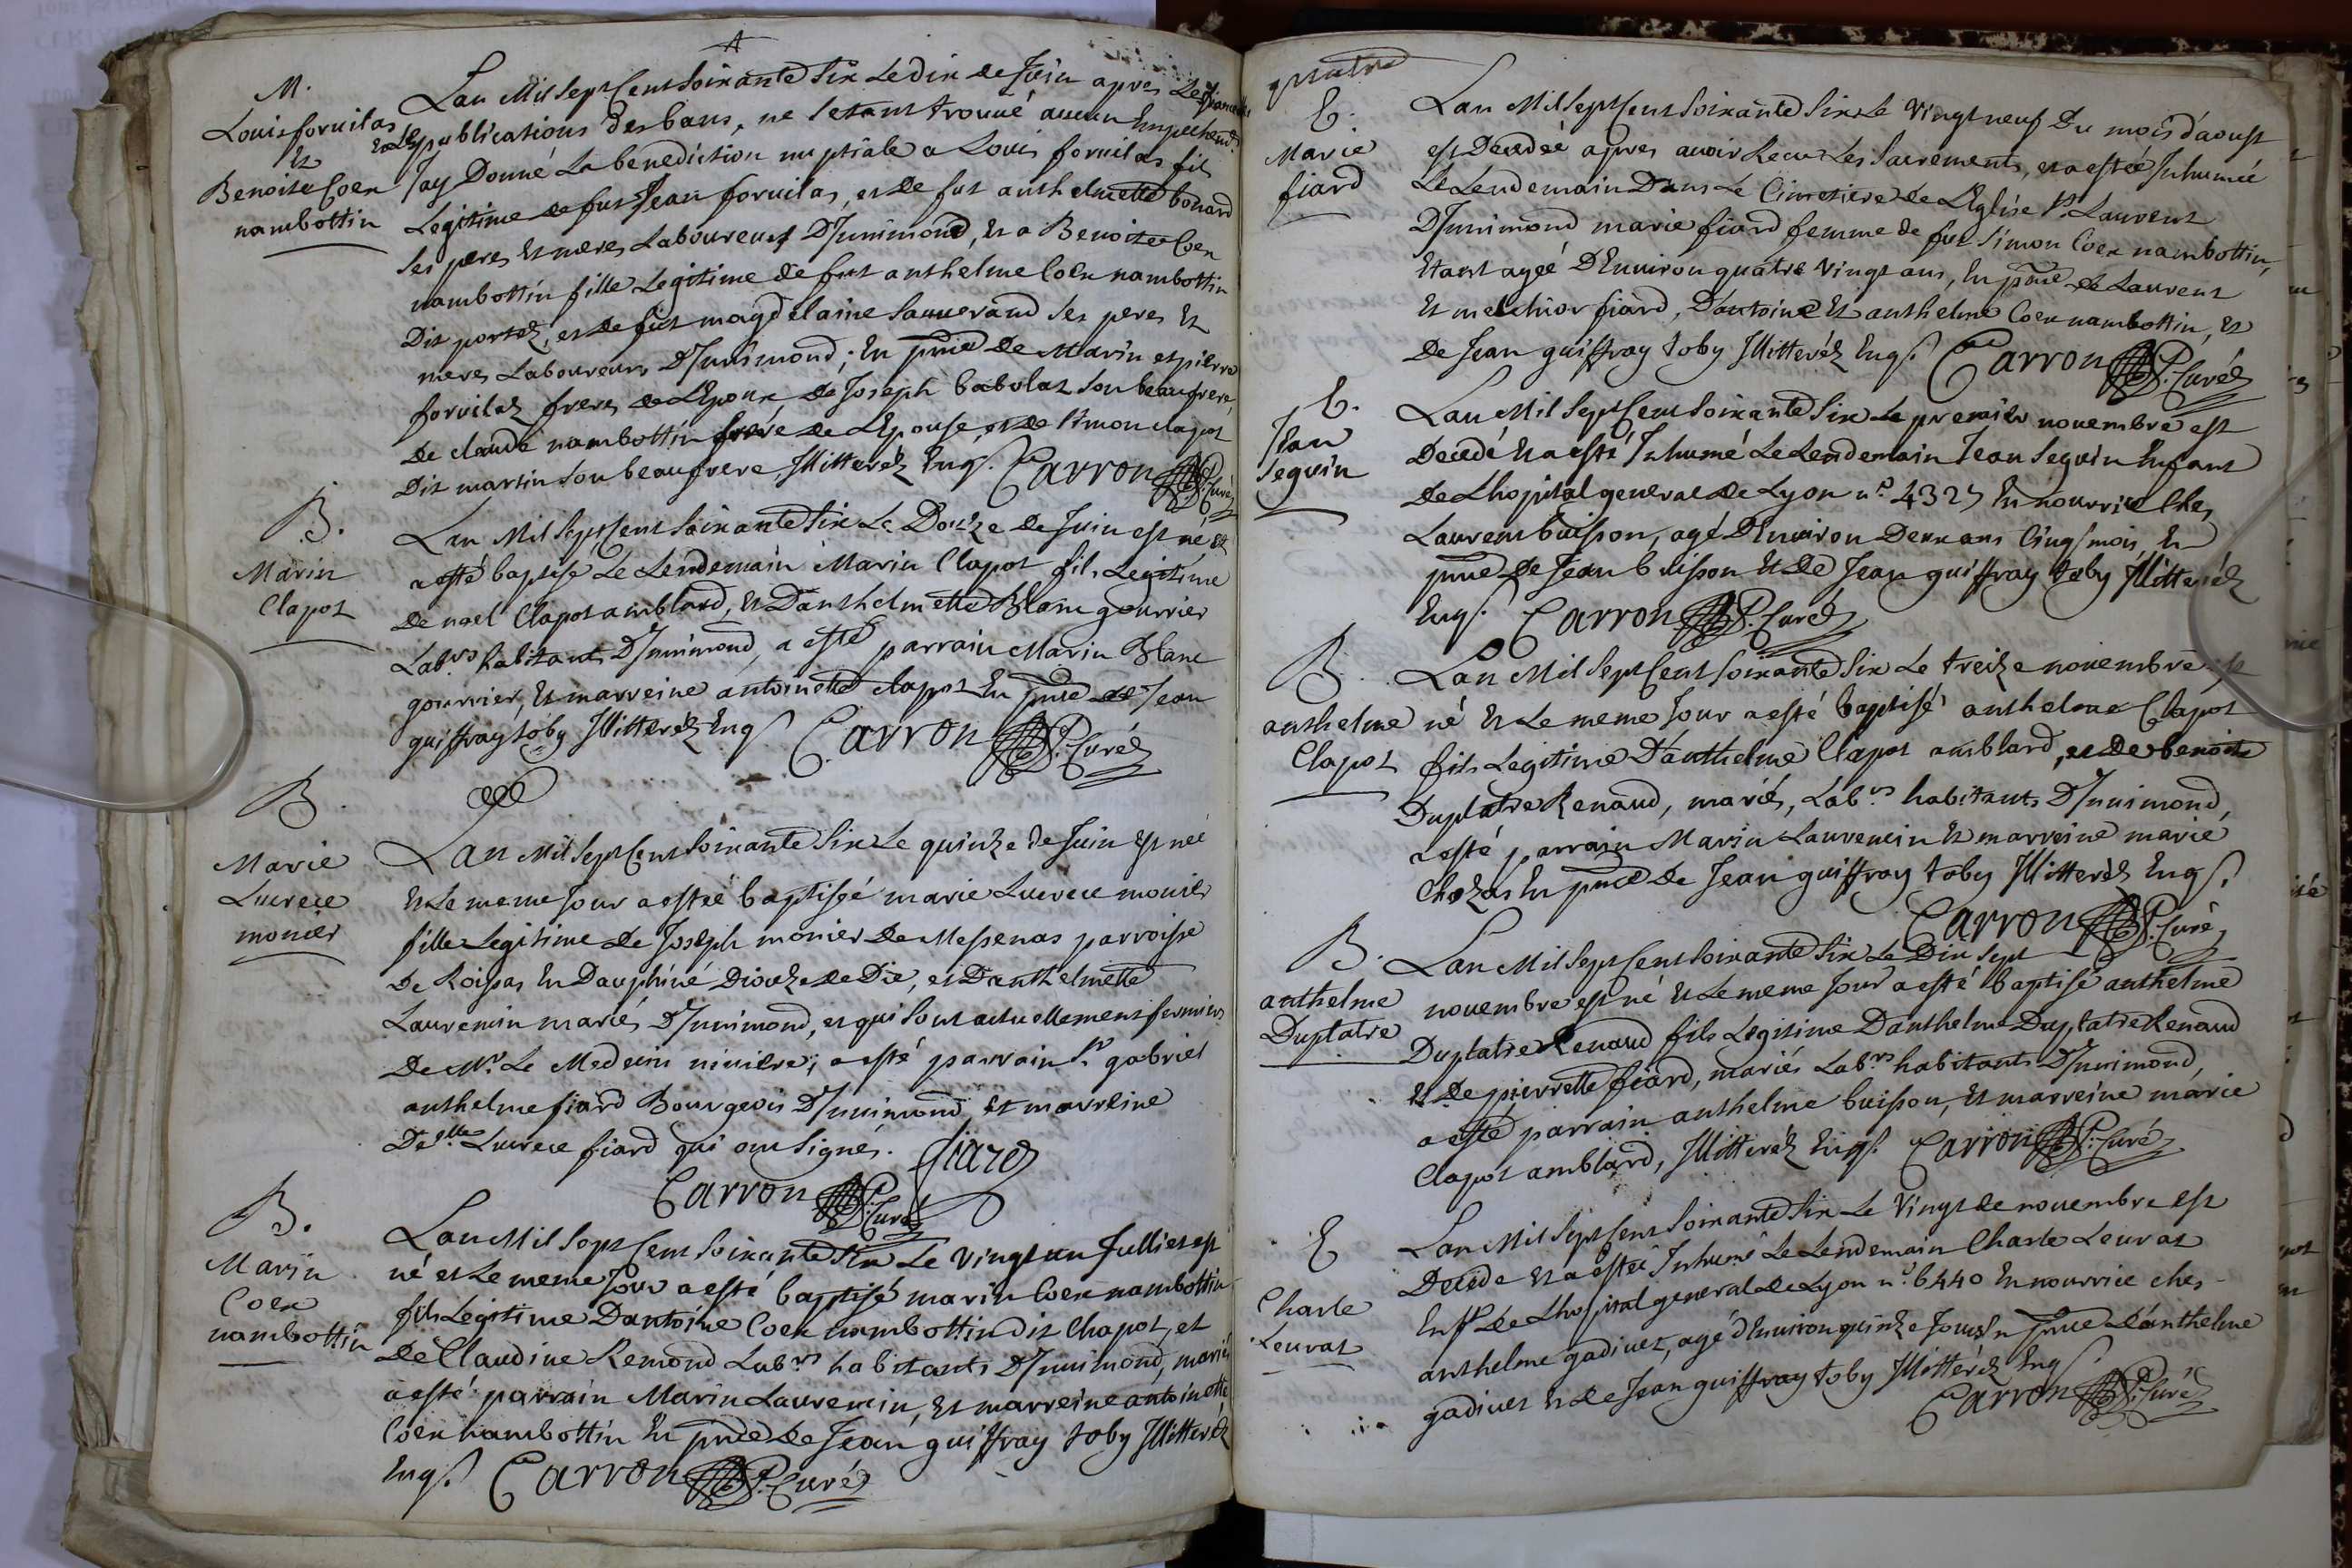 M.
Louis forvilas
Et
Benoite Coex
nambottin
Lan Mil Sept Cent Soixante Six Le dix de Juin apres Les fiancailles
Et Les publications des bans, ne Setant trouvé aucun Empechemt.
Jay Donné La benediction nuptiale a Louis forvilas fils
Legitime de fut Jean forvilas, et de fut anthelmette bonard
Ses peres Et meres Laboureurs D'Junimond, Et a Benoite Coex
nambottin fille Legitime de fut anthelme Coex nambottin
Dit portaz, et de fut magdelaine Sauverand Ses peres Et
meres Laboureurs D'Junimond; En pnce De Marin et pierre
forvilaz freres de L'Epoux de Joseph babolat Son beaufrere,
De claude nambottin frere de L'Epouse, et de Simon clapot
Dit martin Son beaufrere Jllitteréz Enqs. Carron P. Curéz
B.
Marin
Clapot
Lan Mil Sept Cent Soixante Six Le Douze De Juin est né et
a esté baptisé Le Lendemain Marin Clapot fils Legitime
De noel Clapot amblard, Et D'anthelmette Blanc gourrier
Labrs habitants D'Junimond, a esté parrain Marin Blanc
gourrier, Et marreine antoinette clapot En pnce de Jean
guiffray toby Jllitteréz Enqs Carron P. Curéz
B.
Marie
Lucrece
monier
Lan Mil Sept Cent Soixante Six Le quinze de Juin Est neé
Et Le meme Jour a esteé baptiseé marie Lucrece monier
fille Legitime de Joseph monier De Messenas parroisse
De Roissas En Dauphiné Dioceze de Die, et D'anthelmette
Laurencin mariés D'Junimond, et qui Sont actuellement fermiers
De Mr. Le Medecin niviere; a esté parrain Sr. gabriel
anthelme fiard Bourgeois D'Junimond et marreine
Delle Lucrece fiard qui ont Signés. fiard
Carron P. Curé
B.
Marin
Coex
nambottin
Lan Mil Sept Cent Soixante Six Le Vingt un Julliet est
né et Le meme Jour a esté baptisé marin Coex nambottin
fils Legitime D'antoine Coex nambottin dit Chapot, et
de Claudine Remond Labrs habitants D'Junimond, mariés
a esté parrain Marin Laurencin, Et marreine antoinette
Coex nambottin En pnce de Jean guiffray toby Jllitteréz
Enqs. Carron P. Curéz
quatre
E.
Marie
fiard
Lan Mil Sept Cent Soixante Six Le Vingt neuf Du mois d'aoust
est Decedeé apres avoir Recu Les Sacrements, et a esteé Jnhumeé
Le Lendemain Dans Le Cimetiere de L'Eglise St. Laurent
D'Junimond marie fiard femme de fut Simon Coex nambottin,
Etant ageé D'Environ quatre Vingt ans, En pnce de Laurent
Et melchior fiard, D'antoine Et anthelme Coex nambottin, et
De Jean guiffray toby Jllitteréz Enqs. Carron P. Curéz
E.
Jean
Seguin
Lan Mil Sept Cent Soixante Six Le premier novembre est
Decedé Et a esté Jnhumé Le Lendemain Jean Seguin Enfant
De Lhopital general de Lyon no. En nourrice Ches
Laurent buisson, agé D'Environ Deux ans Cinq mois, En
pnce de Jean buisson Et De Jean guiffray toby Jllitteréz
Enqs. Carron P. Curéz
B.
anthelme
Clapot
Lan Mil Sept Cent Soixante Six Le treize novembre est
né Et Le meme Jour a esté baptisé anthelme Clapot
fils Legitime D'anthelme Clapot amblard, et de benoite
Duplatre Renaud, mariés, Labrs habitants D'Junimond,
a esté parrain Marin Laurencin Et marreine marie
Chozas En pnce de Jean guiffray toby Jllitteréz Enqs.
Carron P. Curé
B.
anthelme
Duplatre
Lan Mil Sept Cent Soixante Six Le Dix Sept
novembre est né Et Le meme Jour a esté baptisé anthelme
Duplatre Renaud fils Legitime D'anthelme Duplatre Renaud
Et De pierrette fiard, mariés Labrs habitants D'Junimond,
a esté parrain anthelme buisson, Et marreine marie
Clapot amblard, Jllitteréz Enqs. Carron P. Curé
E
Charle
Leurat
Lan Mil Sept Cent Soixante Six Le Vingt de novembre est
Decede Et a esteé Jnhumé Le Lendemain Charle Leurat
Enft De Lhopital general de Lyon no. 6440 En nourrice ches
anthelme gadiuet, agé d'Environ quinze Jours En pnce d'anthelme
gadiuet Et de Jean guiffray toby Jllitteréz Enqs.
Carron P. Curéz